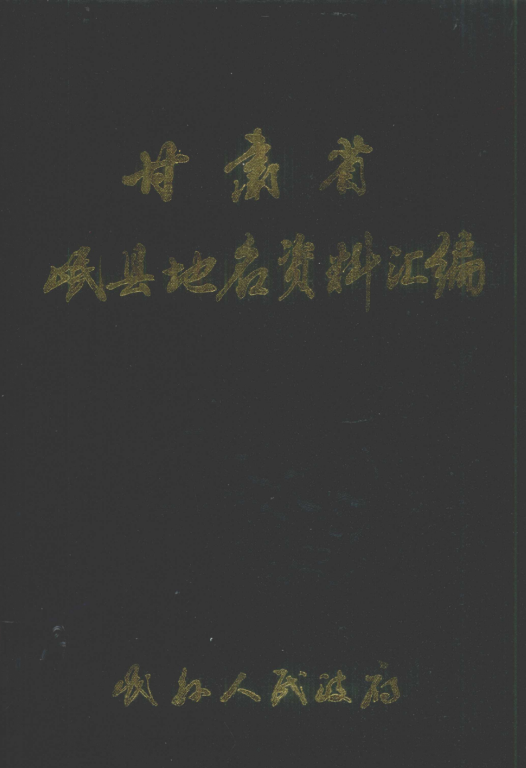 甘肃省
岷县地名资料汇编
岷县人民政府